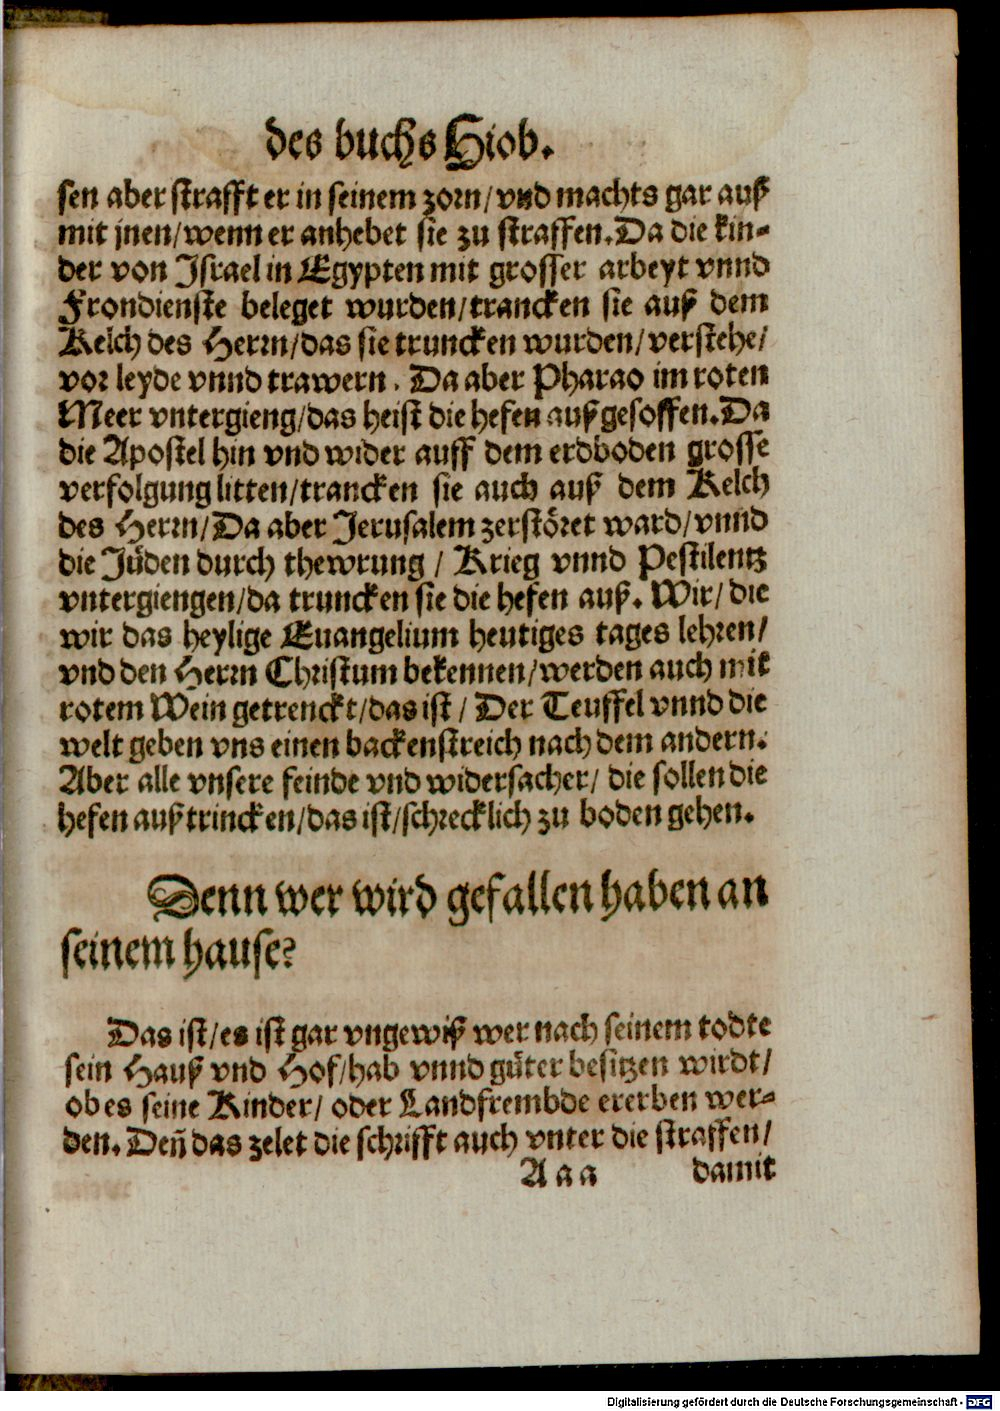 des buchs Hiob.
sen aber strafft er in seinem zorn/vnd machts gar auß
mit jnen/wenn er anhebet sie zu straffen.Da die kin-
der von Israel in Egypten mit grosser arbeyt vnnd
Frondienste beleget wurden/trancken sie auß dem
Kelch des Herrn/das sie truncken wurden/verstehe/
vor leyde vnnd trawern. Da aber Pharao im roten
Meer vntergieng/das heist die hefen außgesoffen.Da
die Apostel hin vnd wider auff dem erdboden grosse
verfolgung litten/trancken sie auch auß dem Kelch
des Herrn/Da aber Jerusalem zerstöret ward/vnnd
die Jüden durch thewrung / Krieg vnnd Pestilentz
vntergiengen/da truncken sie die hefen auß. Wir/ die
wir das heylige Euangelium heutiges tages lehren/
vnd den Herrn Christum bekennen/werden auch mit
rotem Wein getrenckt/das ist / Der Teuffel vnnd die
welt geben vns einen backenstreich nach dem andern.
Aber alle vnsere feinde vnd widersacher/ die sollen die
hefen außtrincken/das ist/schrecklich zu boden gehen.
Denn wer wird gefallen haben an
seinem hause?
Das ist/es ist gar vngewiß wer nach seinem todte
sein Hauß vnd Hof/hab vnnd güter besitzen wirdt/
ob es seine Kinder/ oder Landfrembde ererben wer-
den. Deñ das zelet die schrifft auch vnter die straffen/
A a a damit
Digitalisierung gefördert durch die Deutsche Forschungsgemeinschaft - DFG